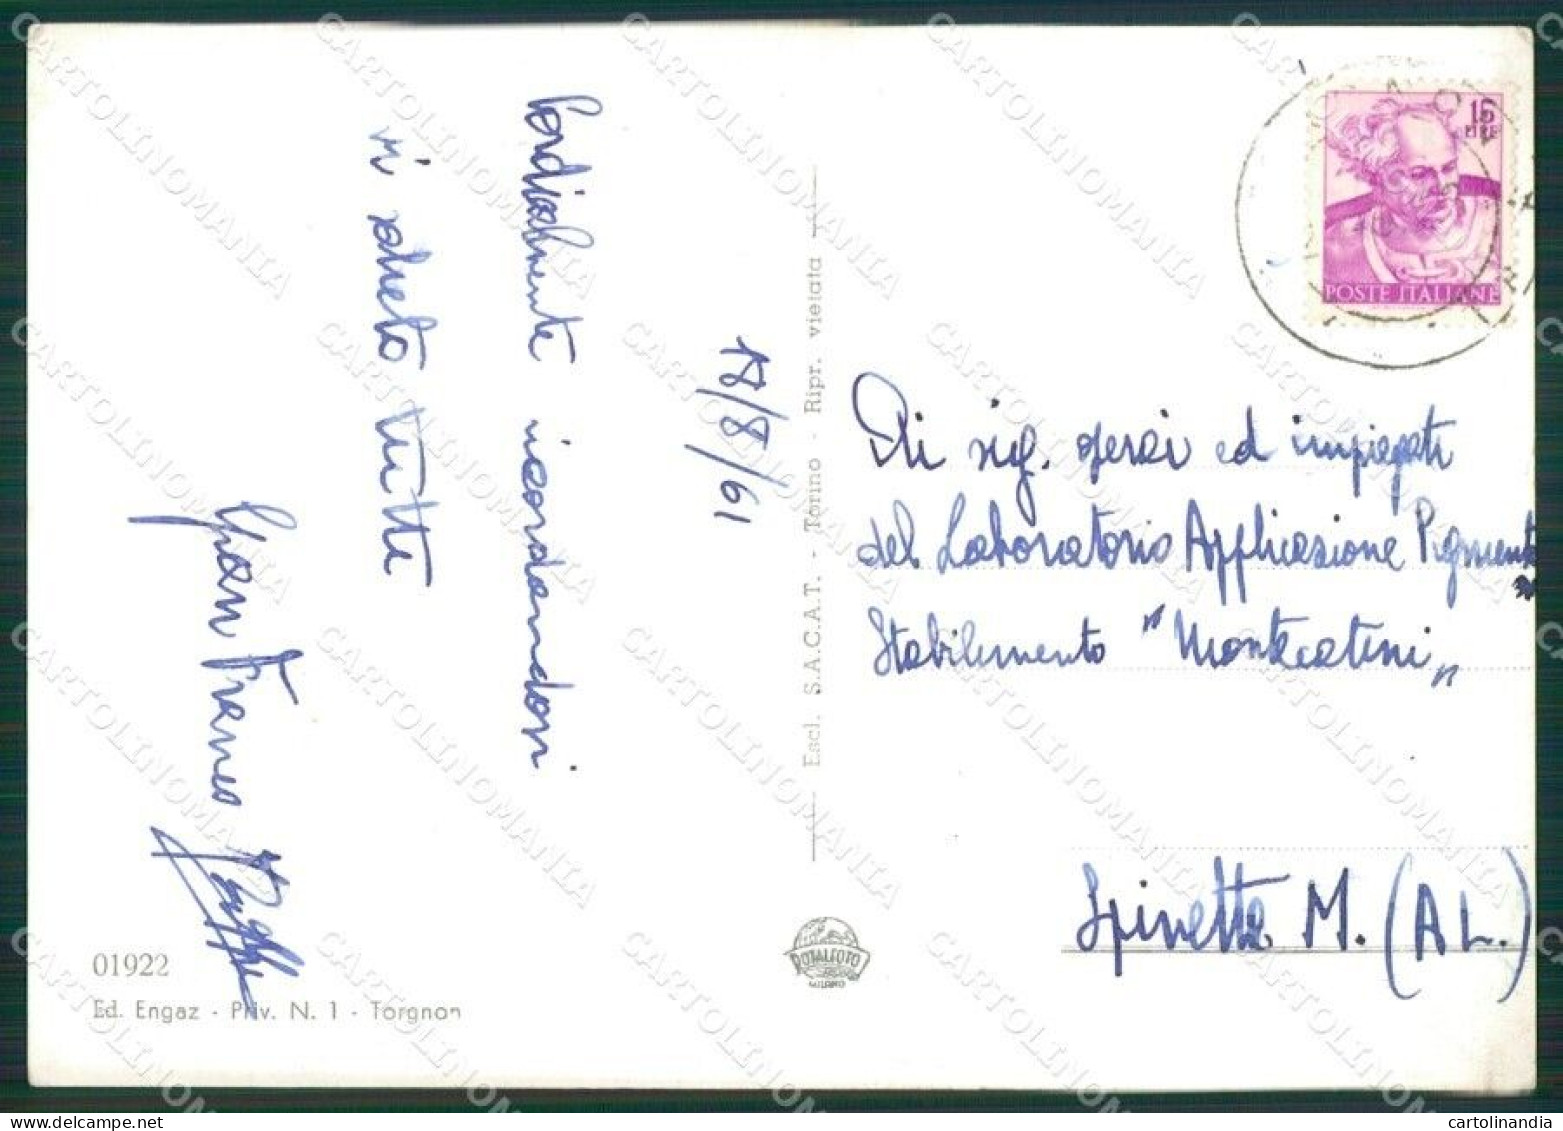 18/8/61
Cordialmente ricordandovi
vi saluto tutti
Gian Franco
01922
Ed. Engaz - Priv. N. 1 - Torgnon
Escl. S.A.C.A.T. - Torino - Ripr. vietata
ROTALFOTO
MILANO
15
LIRE
POSTE ITALIANE
Ai sig. operai ed impiegati
del Laboratorio Applicazione Pigmenti
Stabilimento "Montecatini"
Spinetta M. (AL.)
CARTOLINOMANIA
cartolinandia